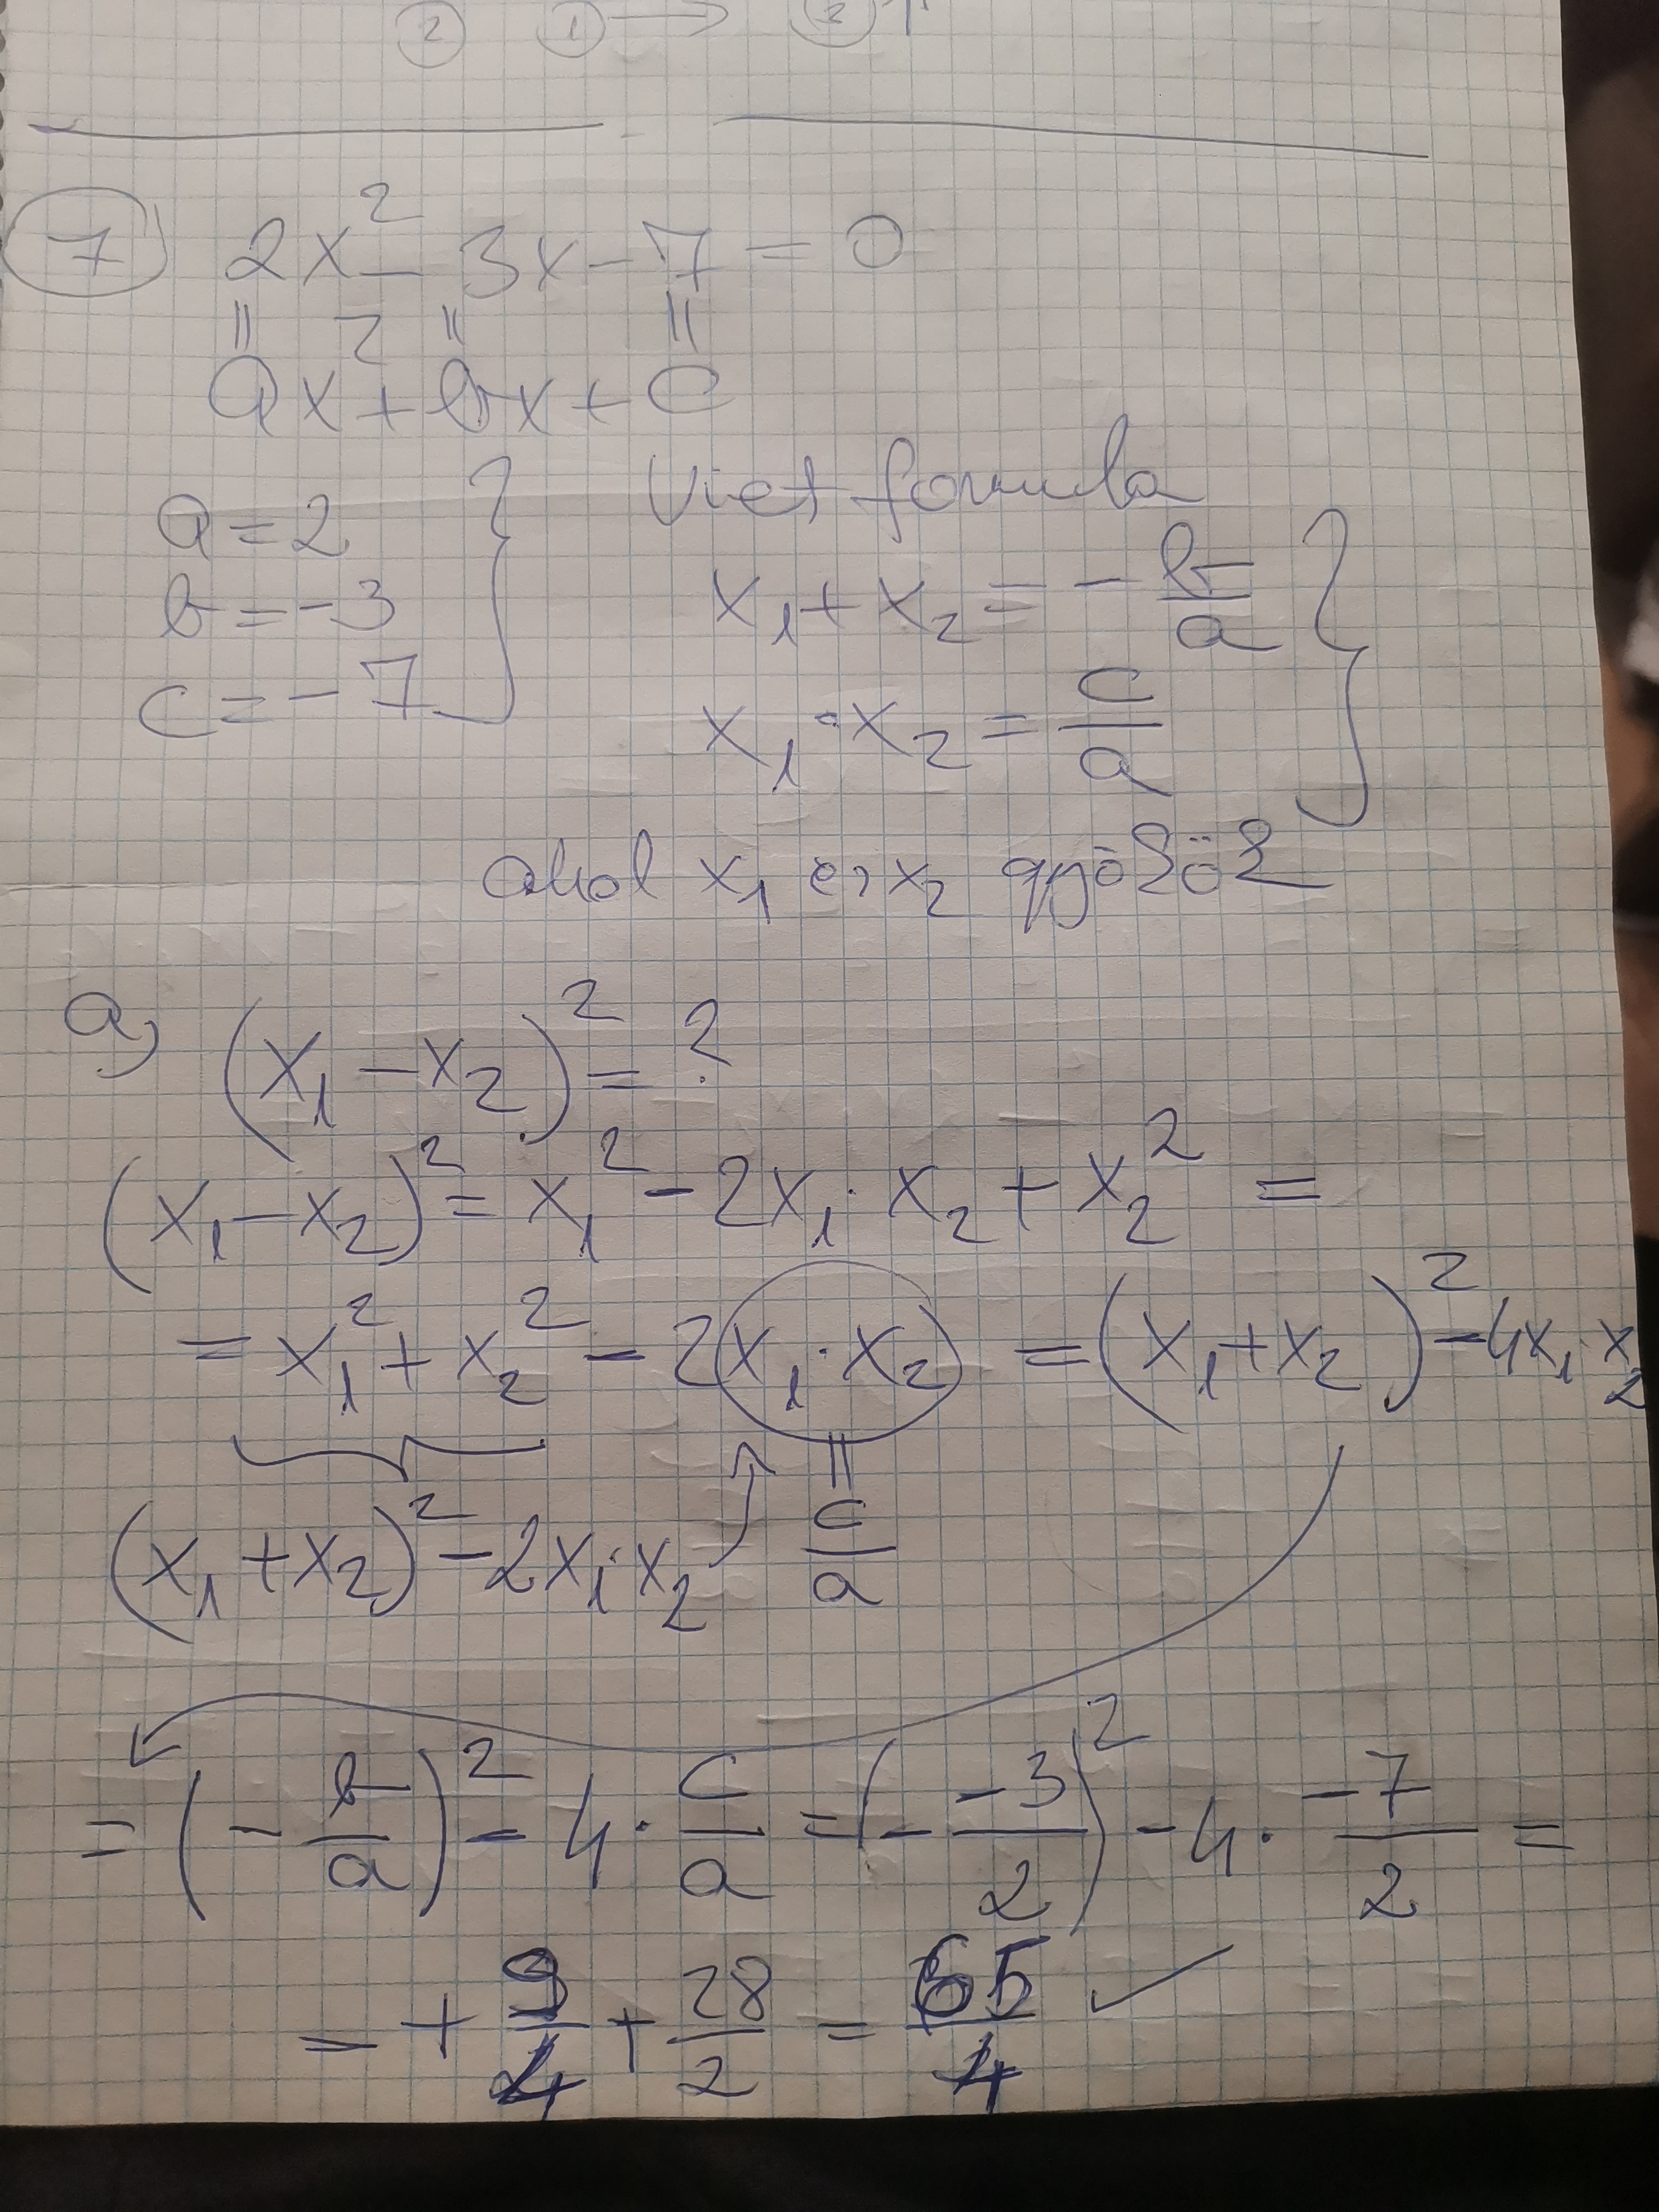 ② ① → ②
⑦ 2x² - 3x - 7 = 0
|| ||  ||
ax² + bx + c
a = 2
b = -3
c = -7
Viet formula
x₁ + x₂ = - b/a
x₁ · x₂ = c/a
ahol x₁ és x₂ gyökök
a) (x₁ - x₂)² = ?
(x₁ - x₂)² = x₁² - 2x₁ · x₂ + x₂² =
= x₁² + x₂² - 2x₁ · x₂ = (x₁ + x₂)² - 4x₁ · x₂
|| c/a
(x₁ + x₂)² - 2x₁ · x₂
= (- b/a)² - 4 · c/a = (- -3/2)² - 4 · -7/2 =
= + 9/4 + 28/2 = 65/4 ✓